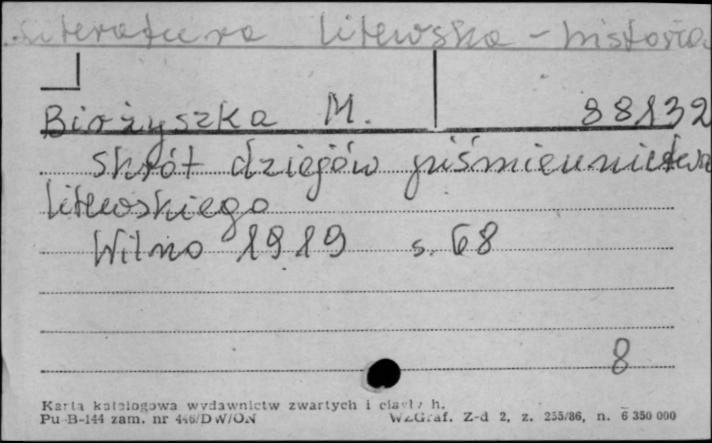 Literatura litewska - historia
Birżyszka M. 88132
Skrót dziejów piśmiennictwa
litewskiego
Wilno 1919 s. 68
8
Karta katalogowa wydawnictw zwartych i ciągłych.
Pu-B-144 zam. nr 446/DW/ON WZGraf. Z-d 2, z. 255/86, n. 6 350 000